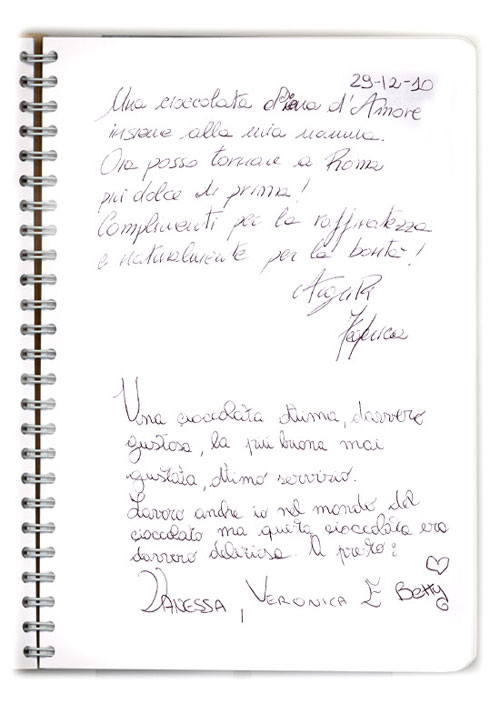 29-12-10
Una cioccolata piena d'Amore
insieme alla mia mamma.
Ora posso tornare a Roma
più dolce di prima!
Complimenti per la raffinatezza
e naturalmente per la bontà!
Auguri
Federica
Una cioccolata ottima, davvero
gustosa, la più buona mai
gustata, ottimo servizio.
Lavoro anche io nel mondo del
cioccolato ma questa cioccolata era
davvero deliziosa. A presto!
VANESSA, VERONICA E Betty